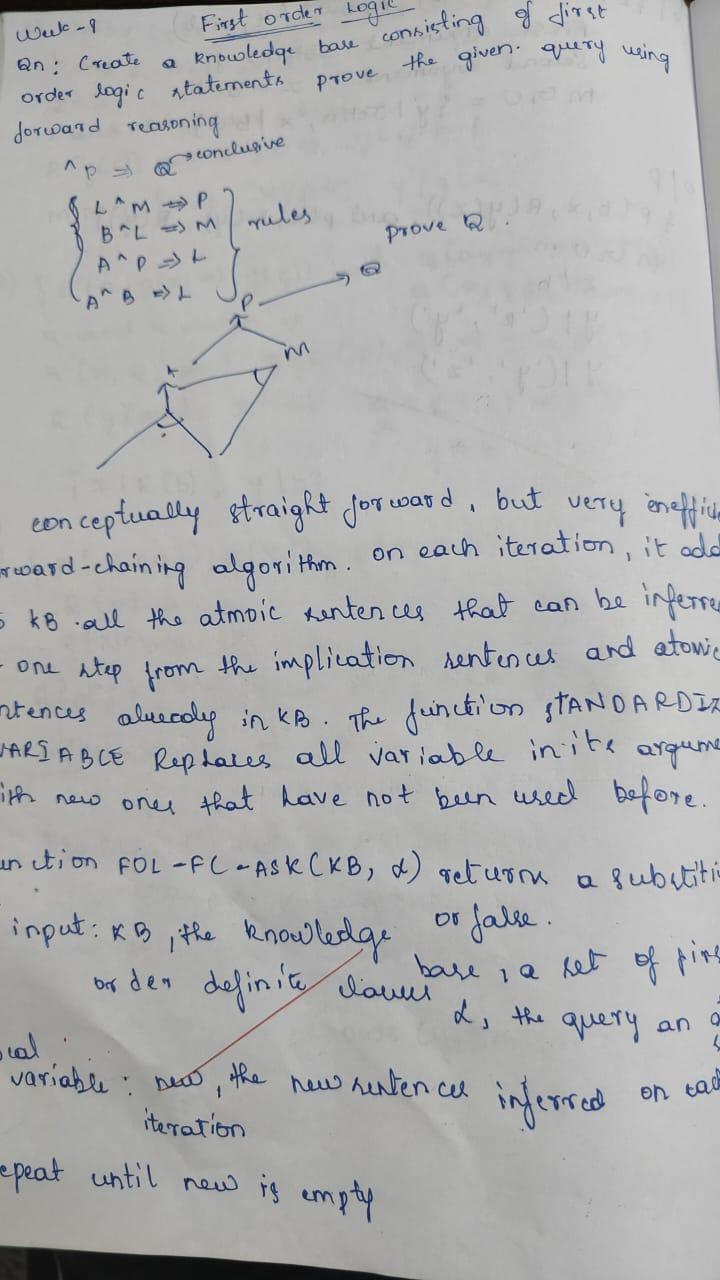 Week - 9
First order Logic
Qn: Create a knowledge base consisting of first
order logic statements prove the given. query using
forward reasoning
^ P => Q → conclusive
L ^ M => P
B ^ L => M
A ^ P => L
A ^ B => L
rules
prove Q.
P
Q
M
conceptually straight forward, but very ineffici
rward-chaining algorithm. on each iteration, it add
KB all the atmoic sentences that can be inferre
one step from the implication sentences and atomic
ntences already in KB. The function STANDARDIZ
VARIABLE Replaces all variable in its argume
ith new ones that have not been used before.
unction FOL-FC-ASK(KB, α) returns a substiti
or false.
input: KB, the knowledge base, a set of firs
order definite clauses
α, the query an a
cal
variable: new, the new sentences inferred on each
iteration
epeat until new is empty